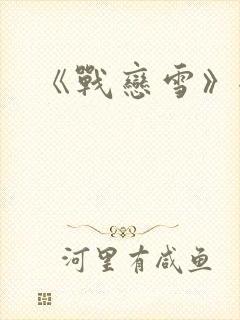 《戰戀雪》
河里有咸鱼